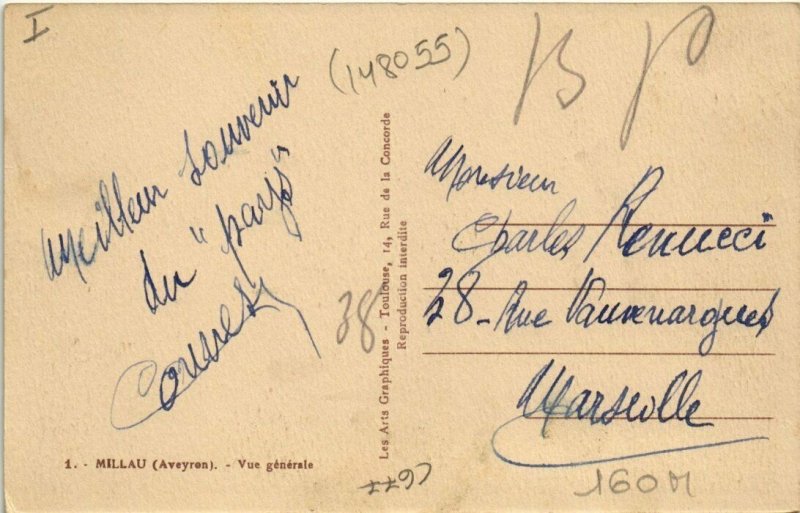 I
(148055)
Meilleur souvenir
du "pays"
38
Les Arts Graphiques - Toulouse, 14, Rue de la Concorde
Reproduction interdite
Monsieur
Charles Renucci
28 - Rue Vauvenargues
Marseille
1. - MILLAU (Aveyron). - Vue générale
160M